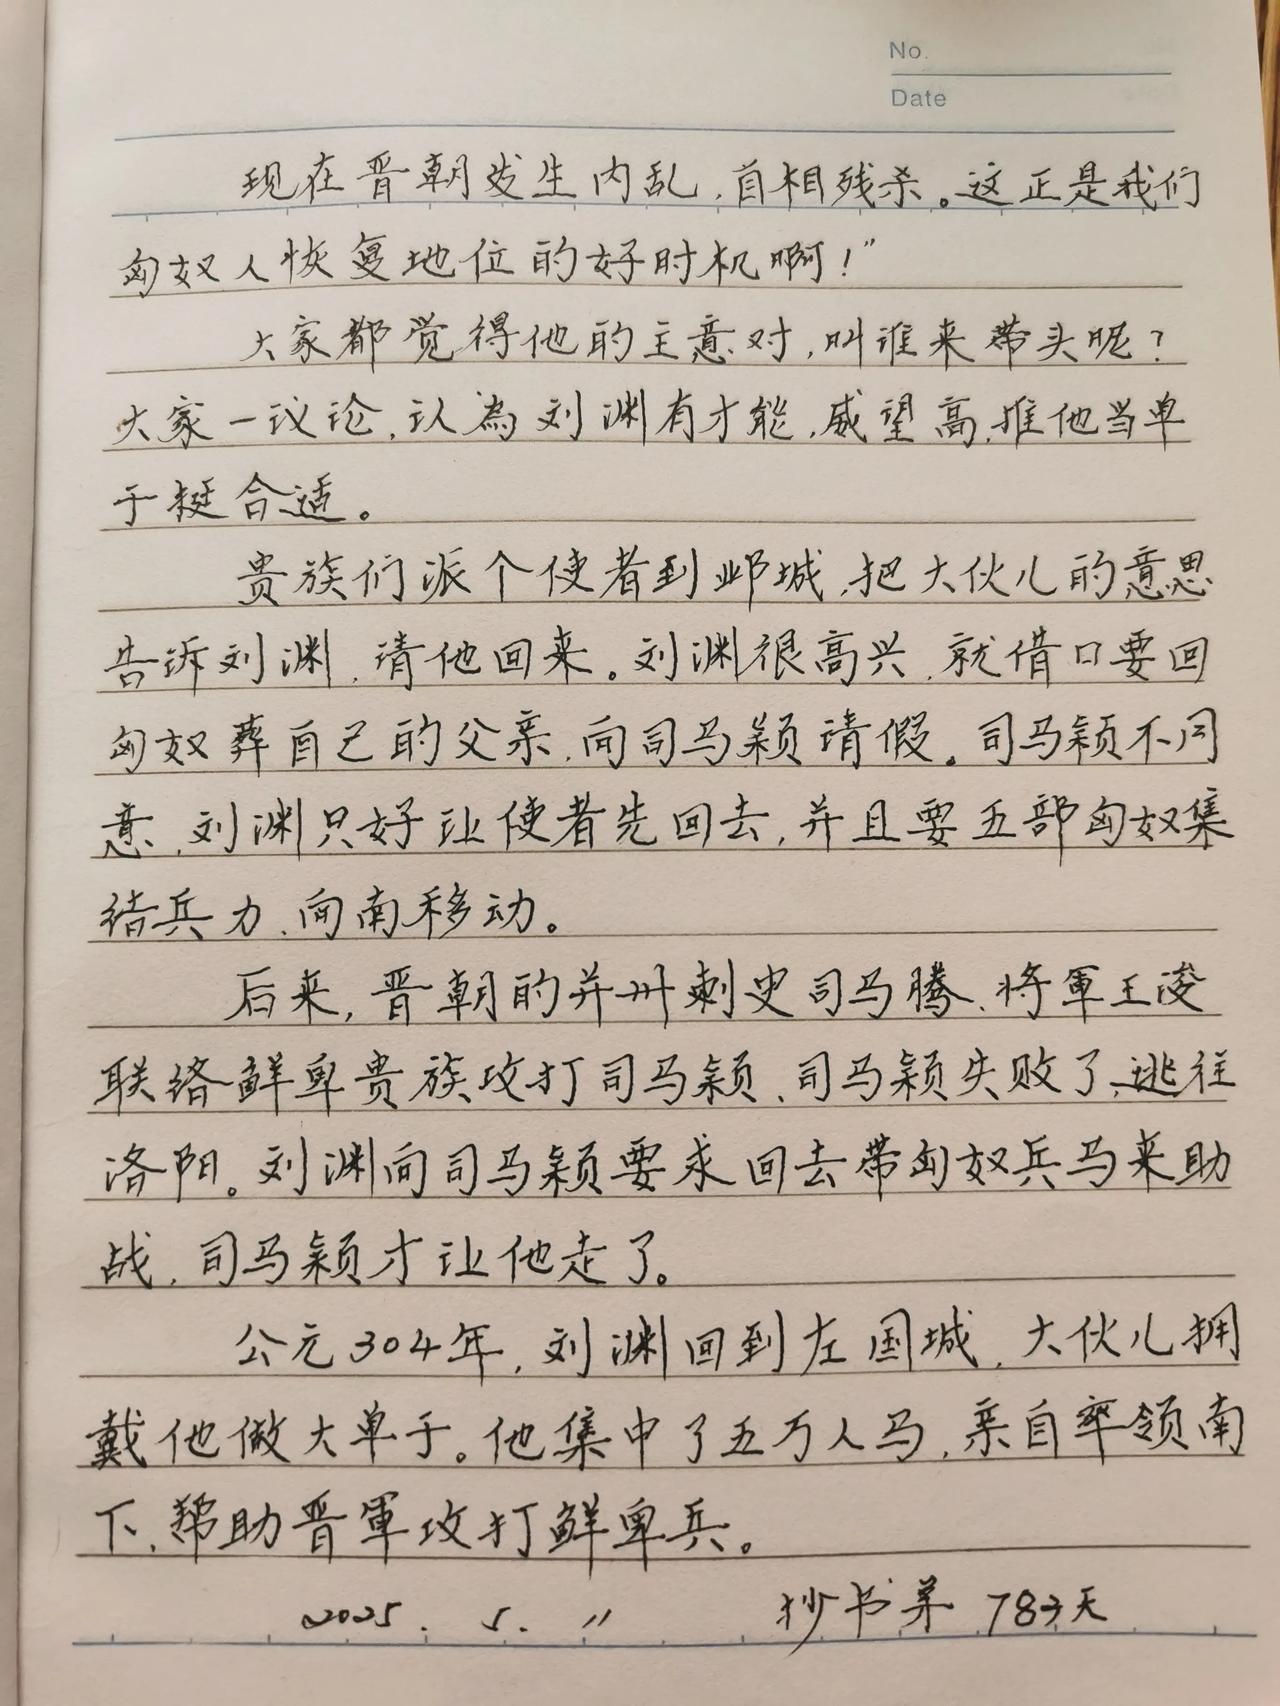 No.
Date
现在晋朝发生内乱,自相残杀。这正是我们
匈奴人恢复地位的好时机啊!”
大家都觉得他的主意对,叫谁来带头呢?
大家一议论,认為刘渊有才能,威望高,推他当单
于挺合适。
贵族们派个使者到邺城,把大伙儿的意思
告诉刘渊,请他回来。刘渊很高兴,就借口要回
匈奴葬自己的父亲,向司马颖请假。司马颖不同
意,刘渊只好让使者先回去,并且要五部匈奴集
结兵力,向南移动。
后来,晋朝的并州刺史司马腾、将軍王浚
联络鲜卑贵族攻打司马颖,司马颖失败了,逃往
洛阳。刘渊向司马颖要求回去带匈奴兵马来助
战,司马颖才让他走了。
公元304年,刘渊回到左国城,大伙儿拥
戴他做大单于。他集中了五万人马,亲自率领南
下,帮助晋軍攻打鲜卑兵。
2025.5.11 抄书第783天